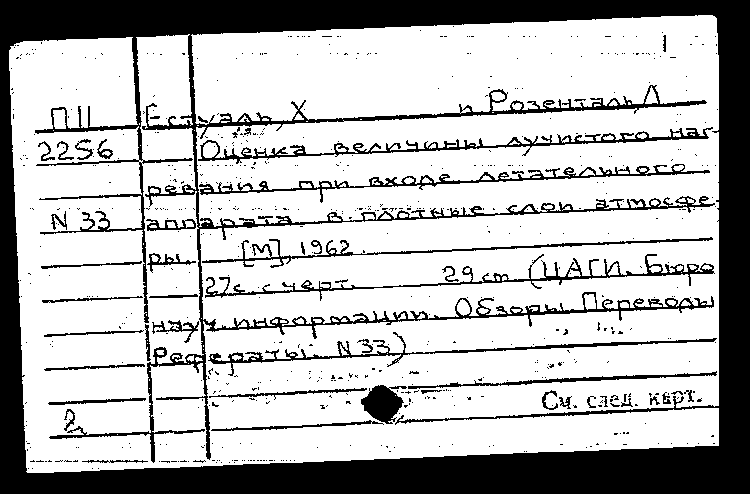 1
П11 Естуаль, Х и Розенталь, Л
2256 Оценка величины лучистого наг-
ревания при входе летательного
N 33 аппарата в плотные слои атмосфе-
ры. [М], 1962.
27с. с черт. 29 cm (ЦАГИ. Бюро
науч. информации. Обзоры. Переводы
Рефераты. N 33)
2 См. след. карт.